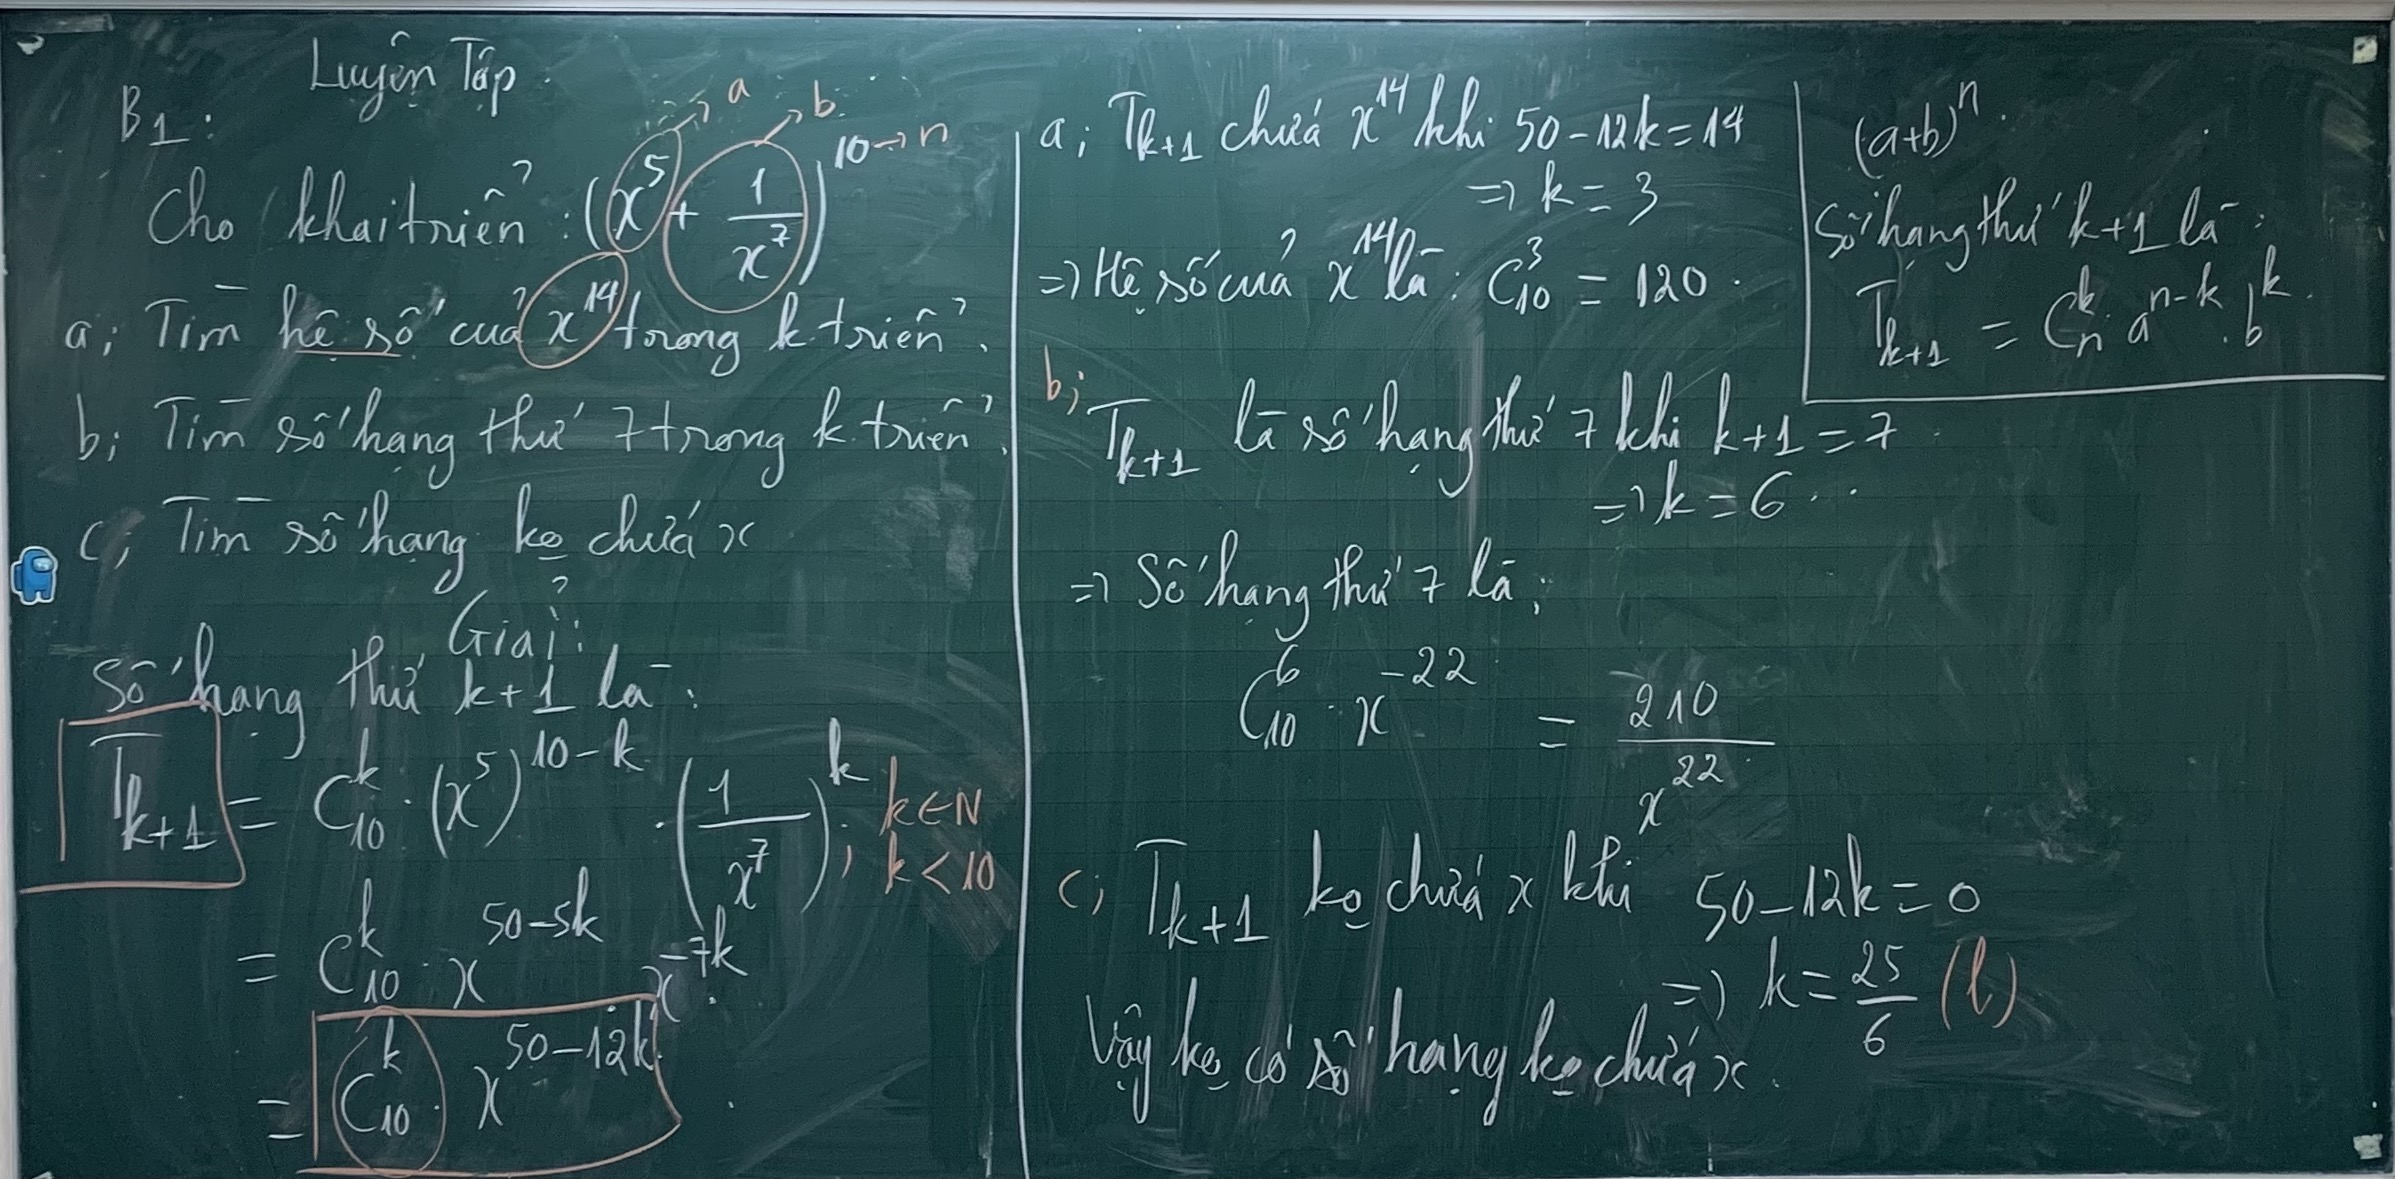 Luyện Tập
B1:
Cho khai triển : (x⁵ + 1/x⁷)¹⁰ → n
→ a
→ b
a; Tìm hệ số của x¹⁴ trong k triển.
b; Tìm số hạng thứ 7 trong k. triển.
c; Tìm số hạng ko chứa x
Giải:
Số hạng thứ k+1 là:
T_{k+1} = C₁₀ᵏ . (x⁵)^{10-k} . (1/x⁷)^k ; k ∈ N
k < 10
= C₁₀ᵏ . x^{50-5k} . x^{-7k}
= C₁₀ᵏ . x^{50-12k} .
a; T_{k+1} chứa x¹⁴ khi 50-12k=14
=> k = 3
=> Hệ số của x¹⁴ là: C₁₀³ = 120 .
b; T_{k+1} là số hạng thứ 7 khi k+1=7
=> k = 6
=> Số hạng thứ 7 là;
C₁₀⁶ . x^{-22} = 210/x²²
c; T_{k+1} ko chứa x khi 50-12k=0
=> k = 25/6 (l)
Vậy ko có số hạng ko chứa x.
(a+b)ⁿ.
Số hạng thứ k+1 là:
T_{k+1} = C_n^k . a^{n-k} . b^k .